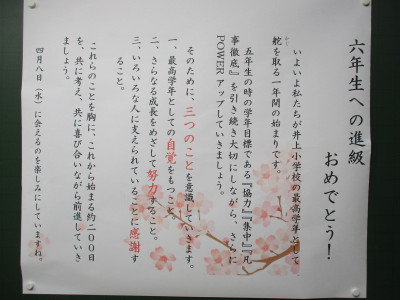 六年生への進級
おめでとう!
いよいよ私たちが井上小学校の最高学年として
舵を取る一年間の始まりです。
五年生の時の学年目標である『協力』『集中』『凡
事徹底』を引き続き大切にしながら、さらに
POWERアップしていきましょう。
そのために、三つのことを意識していきます。
一、最高学年としての自覚をもつこと。
二、さらなる成長をめざして努力すること。
三、いろいろな人に支えられていることに感謝す
ること。
これらのことを胸に、これから始まる約二〇〇日
を、共に考え、共に喜び合いながら前進していき
ましょう。
四月八日(水)に会えるのを楽しみにしていますね。